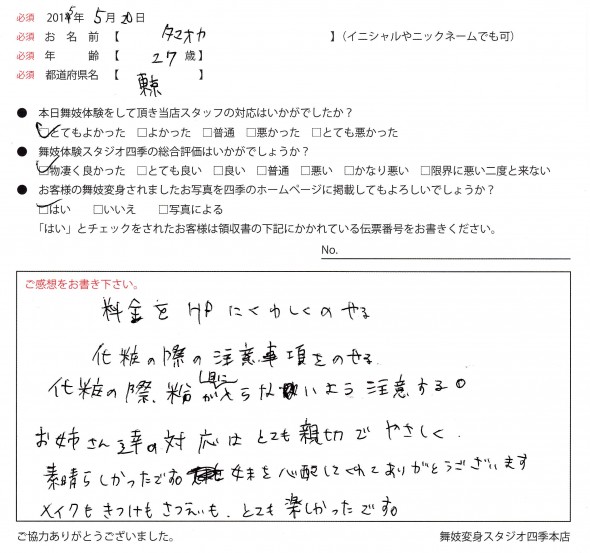 必須 2015年 5月 20日
必須 お名前【 タマオカ 】(イニシャルやニックネームでも可)
必須 年齢【 27歳】
必須 都道府県名【 東京 】
● 本日舞妓体験をして頂き当店スタッフの対応はいかがでしたか？
□とてもよかった □よかった □普通 □悪かった □とても悪かった
● 舞妓体験スタジオ四季の総合評価はいかがでしょうか？
□物凄く良かった □とても良い □良い □普通 □悪い □かなり悪い □限界に悪い二度と来ない
● お客様の舞妓変身されましたお写真を四季のホームページに掲載してもよろしいでしょうか？
□はい □いいえ □写真による
「はい」とチェックをされたお客様は領収書の下記にかかれている伝票番号をお書きください。
No.
ご感想をお書き下さい。
料金をHPにくわしくのせる
化粧の際の注意事項をのせる
化粧の際、粉が目に入らないよう注意する。
お姉さん達の対応はとても親切でやさしく
素晴らしかったです。妹を心配してくれてありがとうございます
メイクもきつけもさつえいも、とても楽しかったです。
ご協力ありがとうございました。
舞妓変身スタジオ四季本店